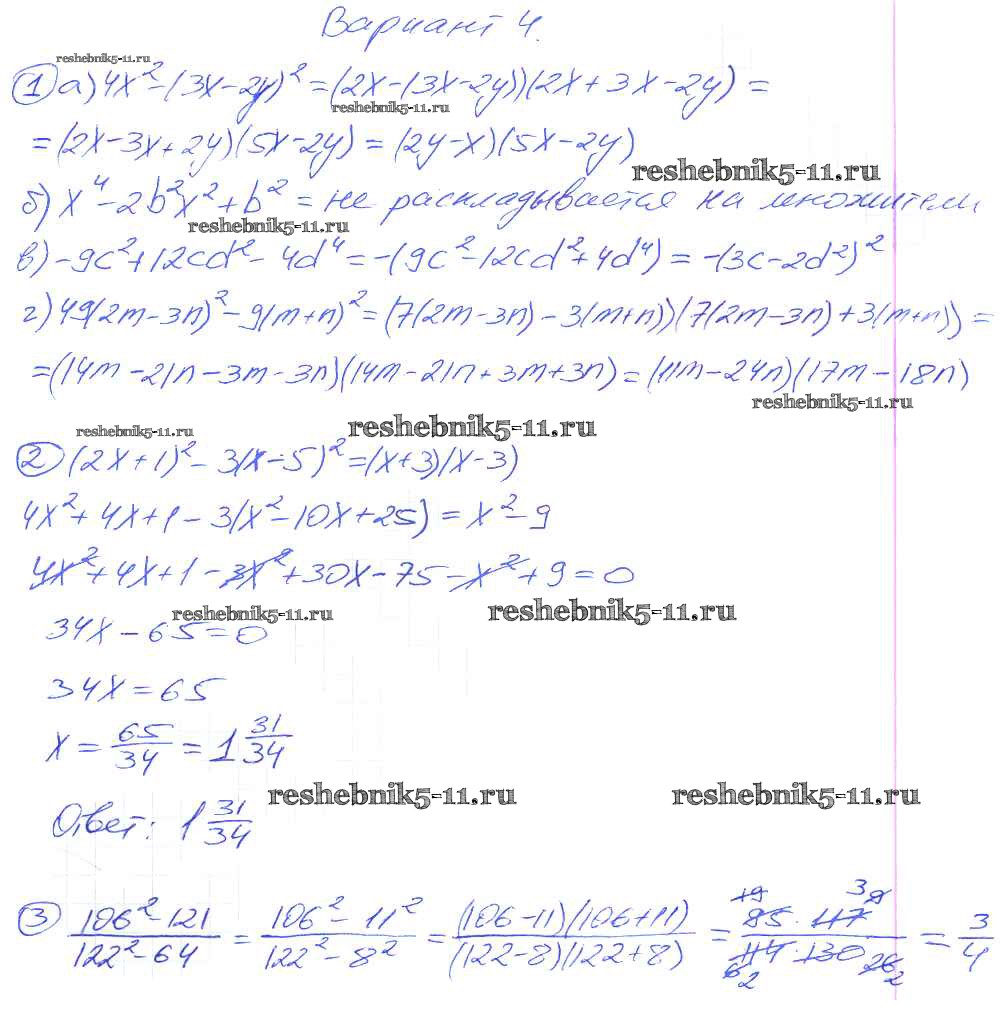 Вариант 4.
reshebnik5-11.ru
① а) 4x² - (3x - 2y)² = (2x - (3x - 2y))(2x + 3x - 2y) =
reshebnik5-11.ru
= (2x - 3x + 2y)(5x - 2y) = (2y - x)(5x - 2y)
reshebnik5-11.ru
б) x⁴ - 2b²x² + b² = не раскладывается на множители
reshebnik5-11.ru
в) -9c² + 12cd² - 4d⁴ = -(9c² - 12cd² + 4d⁴) = -(3c - 2d²)²
г) 49(2m - 3n)² - 9(m + n)² = (7(2m - 3n) - 3(m + n))(7(2m - 3n) + 3(m + n)) =
= (14m - 21n - 3m - 3n)(14m - 21n + 3m + 3n) = (11m - 24n)(17m - 18n)
reshebnik5-11.ru
reshebnik5-11.ru reshebnik5-11.ru
② (2x + 1)² - 3(x - 5)² = (x + 3)(x - 3)
4x² + 4x + 1 - 3(x² - 10x + 25) = x² - 9
4x² + 4x + 1 - 3x² + 30x - 75 - x² + 9 = 0
reshebnik5-11.ru reshebnik5-11.ru
34x - 65 = 0
34x = 65
x = 65/34 = 1 31/34
reshebnik5-11.ru reshebnik5-11.ru
Ответ: 1 31/34
③ (106² - 121)/(122² - 64) = (106² - 11²)/(122² - 8²) = ((106 - 11)(106 + 11))/((122 - 8)(122 + 8)) = (85 · 117)/(114 · 130) = 3/4